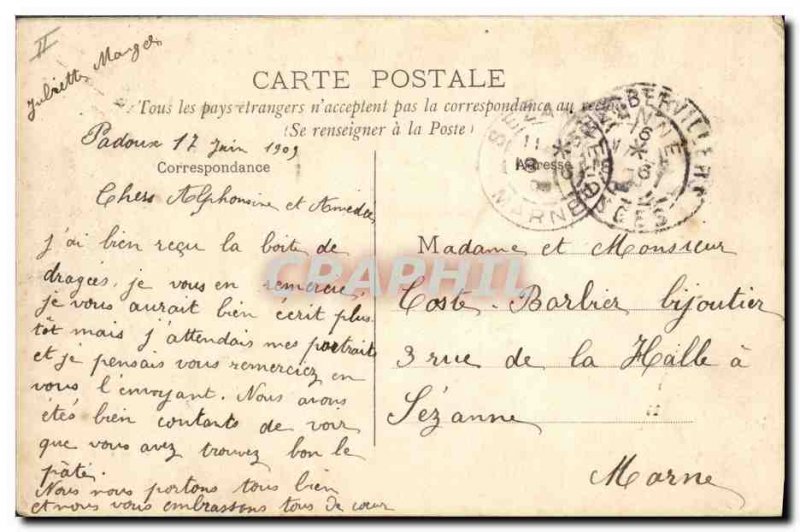 II
Juliette
CARTE POSTALE
Tous les pays étrangers n'acceptent pas la correspondance au recto
(Se renseigner à la Poste)
Padoux 17 Juin 1909
Correspondance
Adresse
Chers Alphonsine et Amédée
j'ai bien reçu la boite de
dragées, je vous en remercie,
je vous aurait bien écrit plus
tôt mais j'attendais mes portraits
et je pensais vous remerciez en
vous l'envoyant. Nous avons
étés bien contants de voir
que vous avez trouvez bon le
pâté.
Nous nous portons tous bien
et nous vous embrassons tous de cœur
Madame et Monsieur
Coste-Barbier bijoutier
3 rue de la Halle à
Sézanne
Marne
SEZANNE
MARNE
CPAPHIL